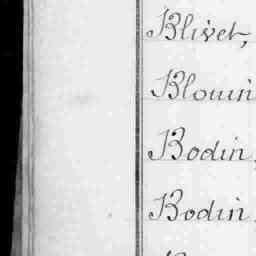 Blivet,
Blouin
Bodin,
Bodin,